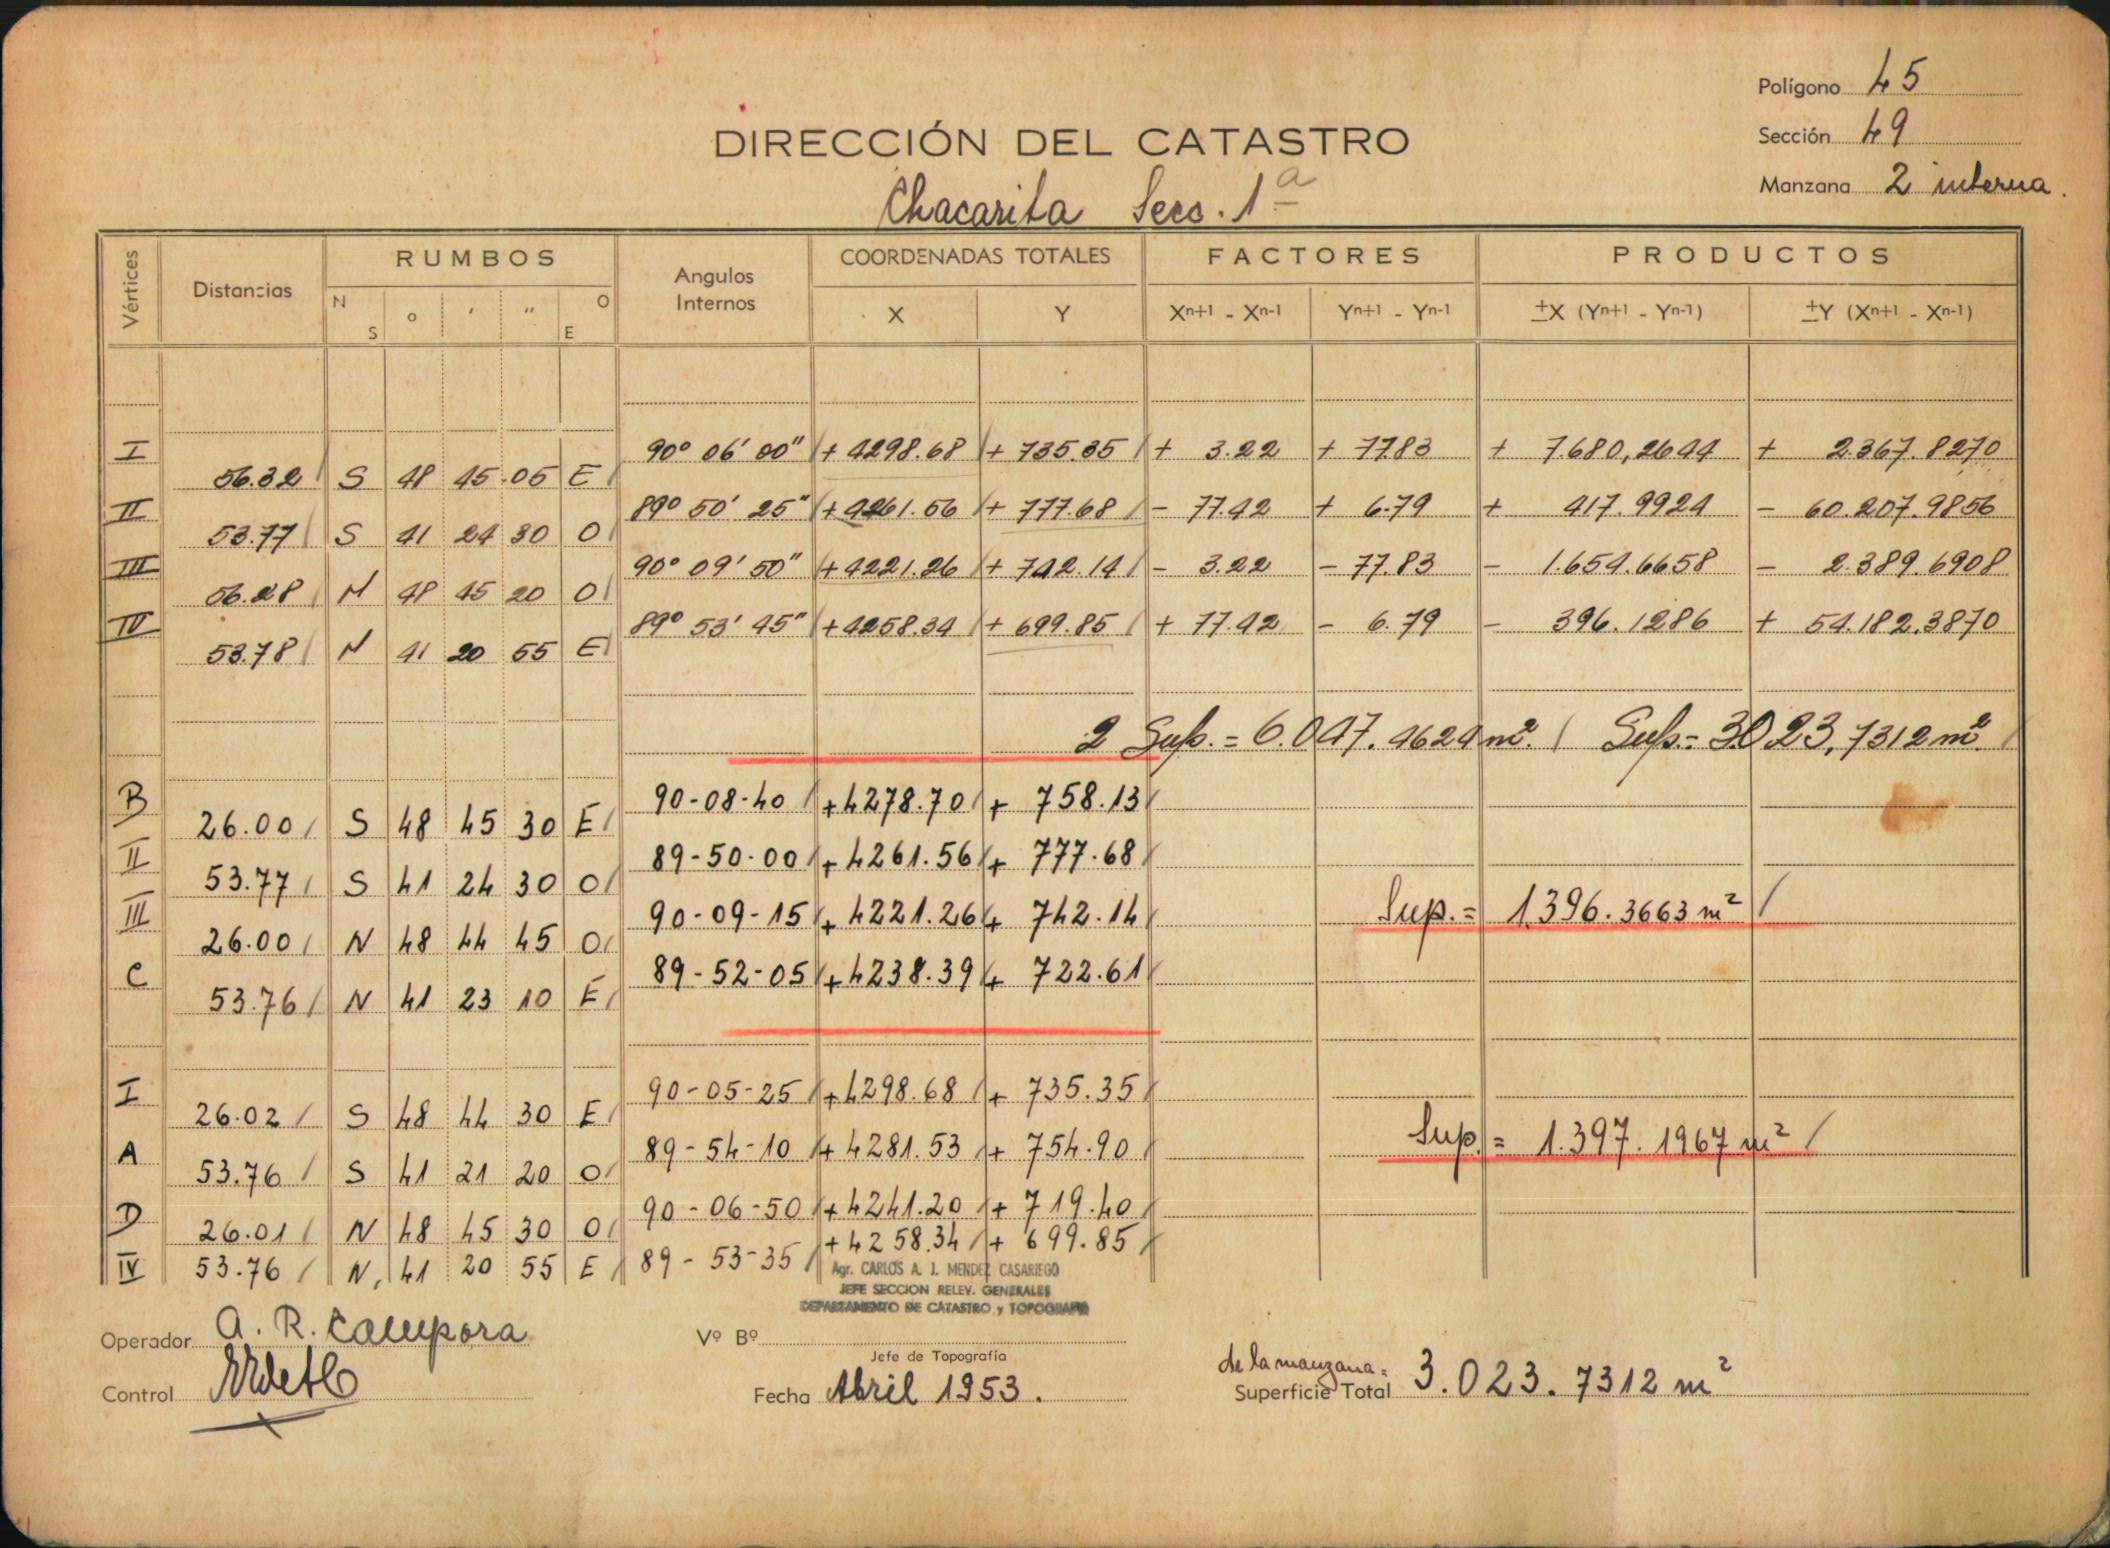 Polígono 45
Sección 49
Manzana 2 interna.
DIRECCIÓN DEL CATASTRO
Chacarita Secc. 1ª
Vértices Distancias RUMBOS Angulos Internos COORDENADAS TOTALES FACTORES PRODUCTOS
N S o ' " O E X Y Xn+1 - Xn-1 Yn+1 - Yn-1 ±X (Yn+1 - Yn-1) ±Y (Xn+1 - Xn-1)
I 90° 06' 00" + 4298.68 + 735.35 + 3.22 + 77.83 + 7.680,2644 + 2.367.8270
56.32 S 48 45 05 E
II 89° 50' 25" + 4261.56 + 777.68 - 77.42 + 6.79 + 417.9924 - 60.207.9856
53.77 S 41 24 30 O
III 90° 09' 50" + 4221.26 + 742.14 - 3.22 - 77.83 - 1.654.6658 - 2.389.6908
56.28 N 48 45 20 O
IV 89° 53' 45" + 4258.34 + 699.85 + 77.42 - 6.79 - 396.1286 + 54.182.3870
53.78 N 41 20 55 E
2 Sup. = 6.047.4624 m². Sup. = 3.023,7312 m².
B 90-08-40 + 4278.70 + 758.13
26.00 S 48 45 30 E
II 89-50-00 + 4261.56 + 777.68
53.77 S 41 24 30 O
III 90-09-15 + 4221.26 + 742.14 Sup. = 1.396.3663 m²
26.00 N 48 44 45 O
C 89-52-05 + 4238.39 + 722.61
53.76 N 41 23 10 E
I 90-05-25 + 4298.68 + 735.35
26.02 S 48 44 30 E
A 89-54-10 + 4281.53 + 754.90 Sup. = 1.397.1967 m²
53.76 S 41 21 20 O
D 90-06-50 + 4241.20 + 719.40
26.01 N 48 45 30 O
IV 89-53-35 + 4258.34 + 699.85
53.76 N 41 20 55 E
Agr. CARLOS A. J. MENDEZ CASARIEGO
JEFE SECCION RELEV. GENERALES
DEPARTAMENTO DE CATASTRO y TOPOGRAFIA
Operador A. R. Campora
Vº Bº
Jefe de Topografía
Control
Fecha Abril 1953.
de la manzana =
Superficie Total 3.023.7312 m²